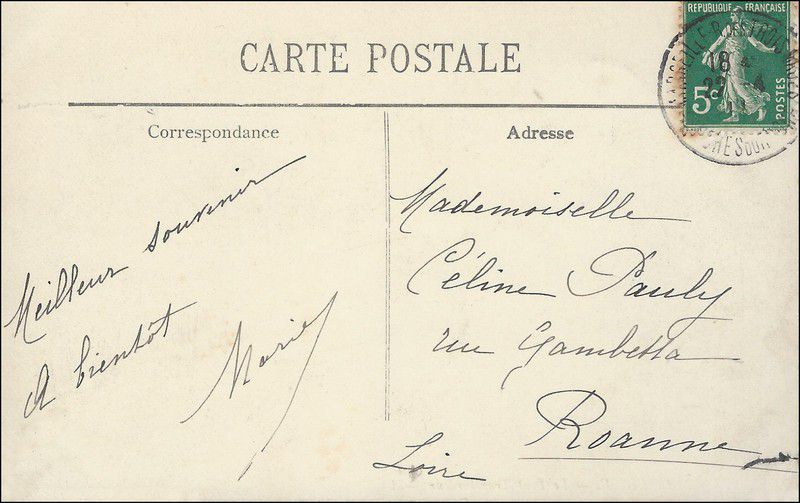 CARTE POSTALE
RÉPUBLIQUE FRANÇAISE
5c
POSTES
18
22 4
Correspondance
Adresse
Meilleur souvenir
A bientôt
Marie
Mademoiselle
Céline Pauly
rue Gambetta
Roanne
Loire